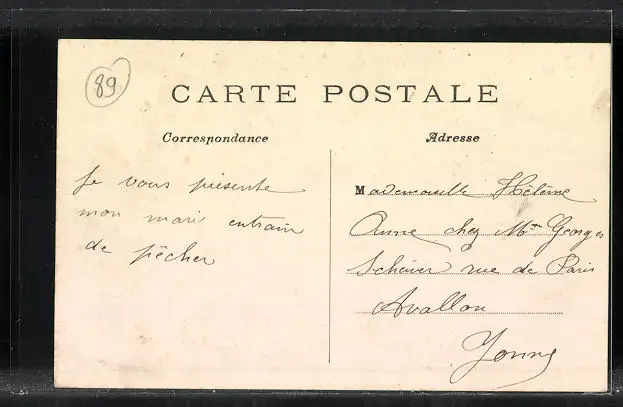 89
CARTE POSTALE
Correspondance
Adresse
Je vous présente
mon mari entrain
de pêcher
Mademoiselle Hélène
Anne chez Mme Georges
rue de Paris
Avallon
Yonne